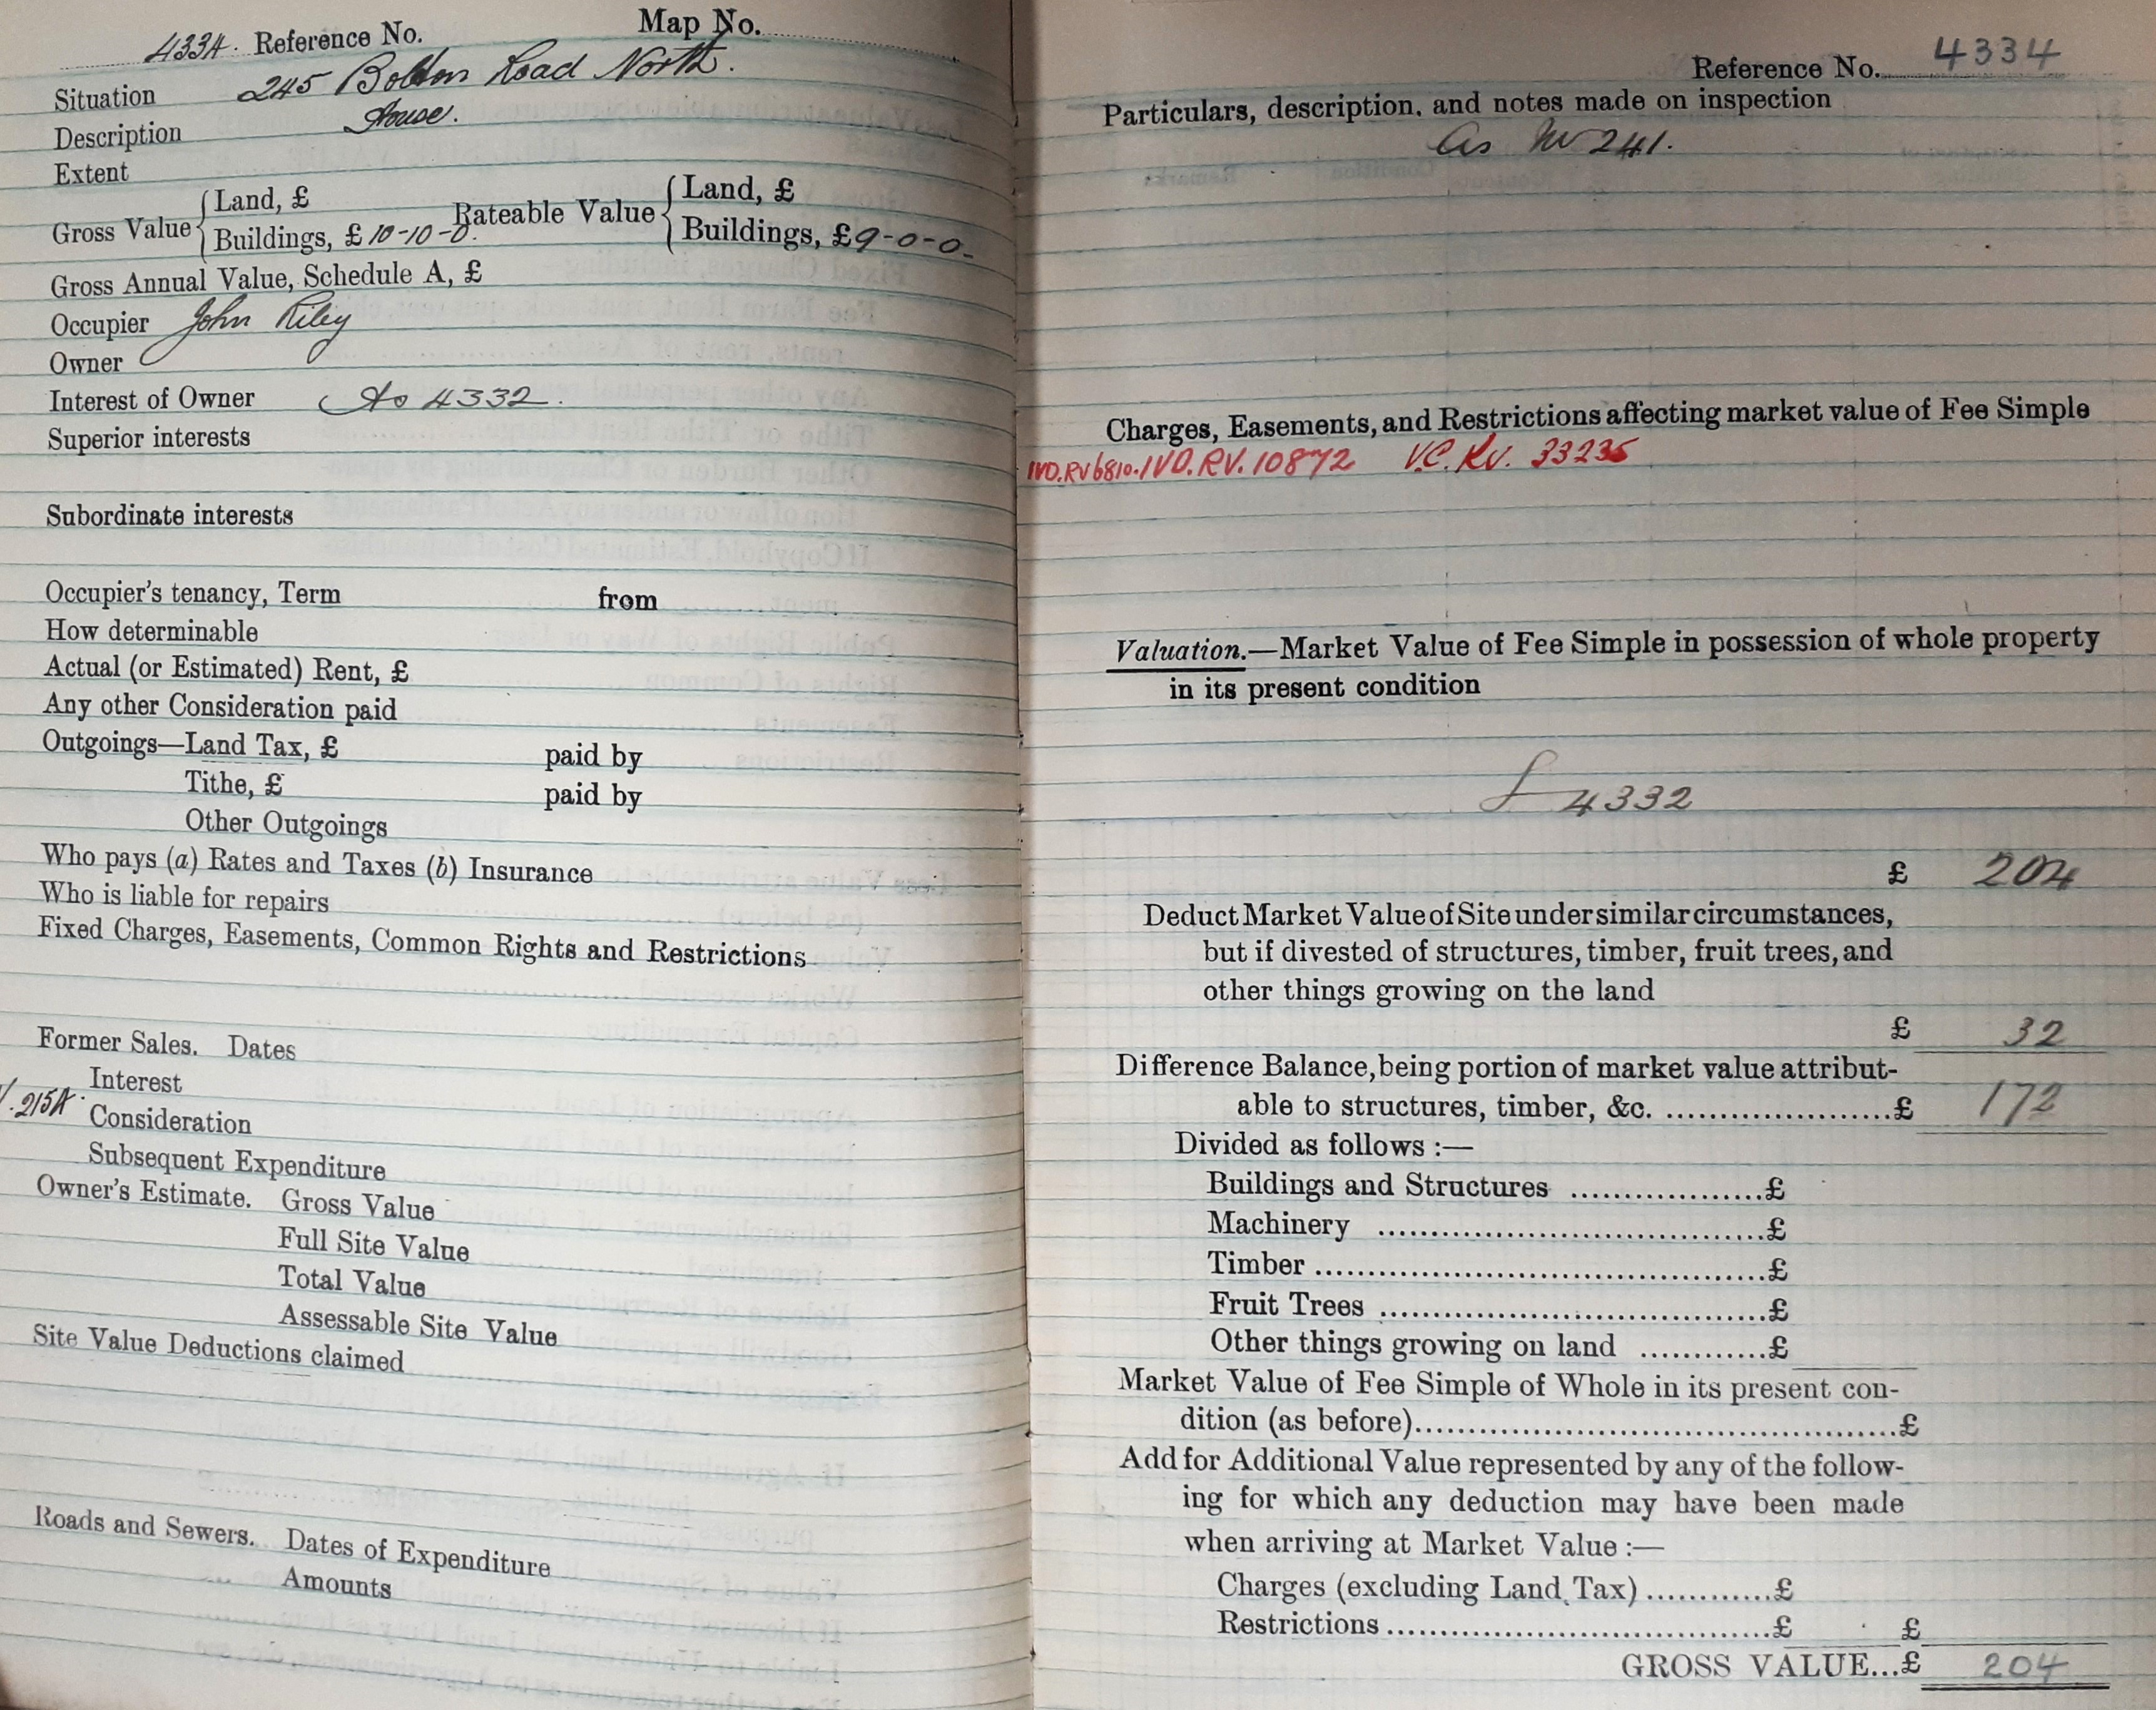 4334. Reference No. Map No.
Situation 245 Bolton Road North.
Description House.
Extent
Gross Value { Land, £ Rateable Value { Land, £
Buildings, £ 10-10-0. Buildings, £ 9-0-0.
Gross Annual Value, Schedule A, £
Occupier John Riley
Owner
Interest of Owner As 4332.
Superior interests
Subordinate interests
Occupier's tenancy, Term from
How determinable
Actual (or Estimated) Rent, £
Any other Consideration paid
Outgoings—Land Tax, £ paid by
Tithe, £ paid by
Other Outgoings
Who pays (a) Rates and Taxes (b) Insurance
Who is liable for repairs
Fixed Charges, Easements, Common Rights and Restrictions
Former Sales. Dates
Interest
Consideration
Subsequent Expenditure
Owner's Estimate. Gross Value
Full Site Value
Total Value
Assessable Site Value
Site Value Deductions claimed
Roads and Sewers. Dates of Expenditure
Amounts
Reference No. 4334
Particulars, description, and notes made on inspection
As No 241.
Charges, Easements, and Restrictions affecting market value of Fee Simple
IVD.RV6810. IVD.RV. 10872 V.C. Rv. 33235
Valuation.—Market Value of Fee Simple in possession of whole property
in its present condition
4332
£ 204
Deduct Market Value of Site under similar circumstances,
but if divested of structures, timber, fruit trees, and
other things growing on the land
£ 32
Difference Balance, being portion of market value attribut-
able to structures, timber, &c. ......................£ 172
Divided as follows :—
Buildings and Structures ...................£
Machinery ......................................£
Timber ............................................£
Fruit Trees ......................................£
Other things growing on land ............£
Market Value of Fee Simple of Whole in its present con-
dition (as before)................................................£
Add for Additional Value represented by any of the follow-
ing for which any deduction may have been made
when arriving at Market Value :—
Charges (excluding Land Tax) ............£
Restrictions ......................................£ £
GROSS VALUE...£ 204